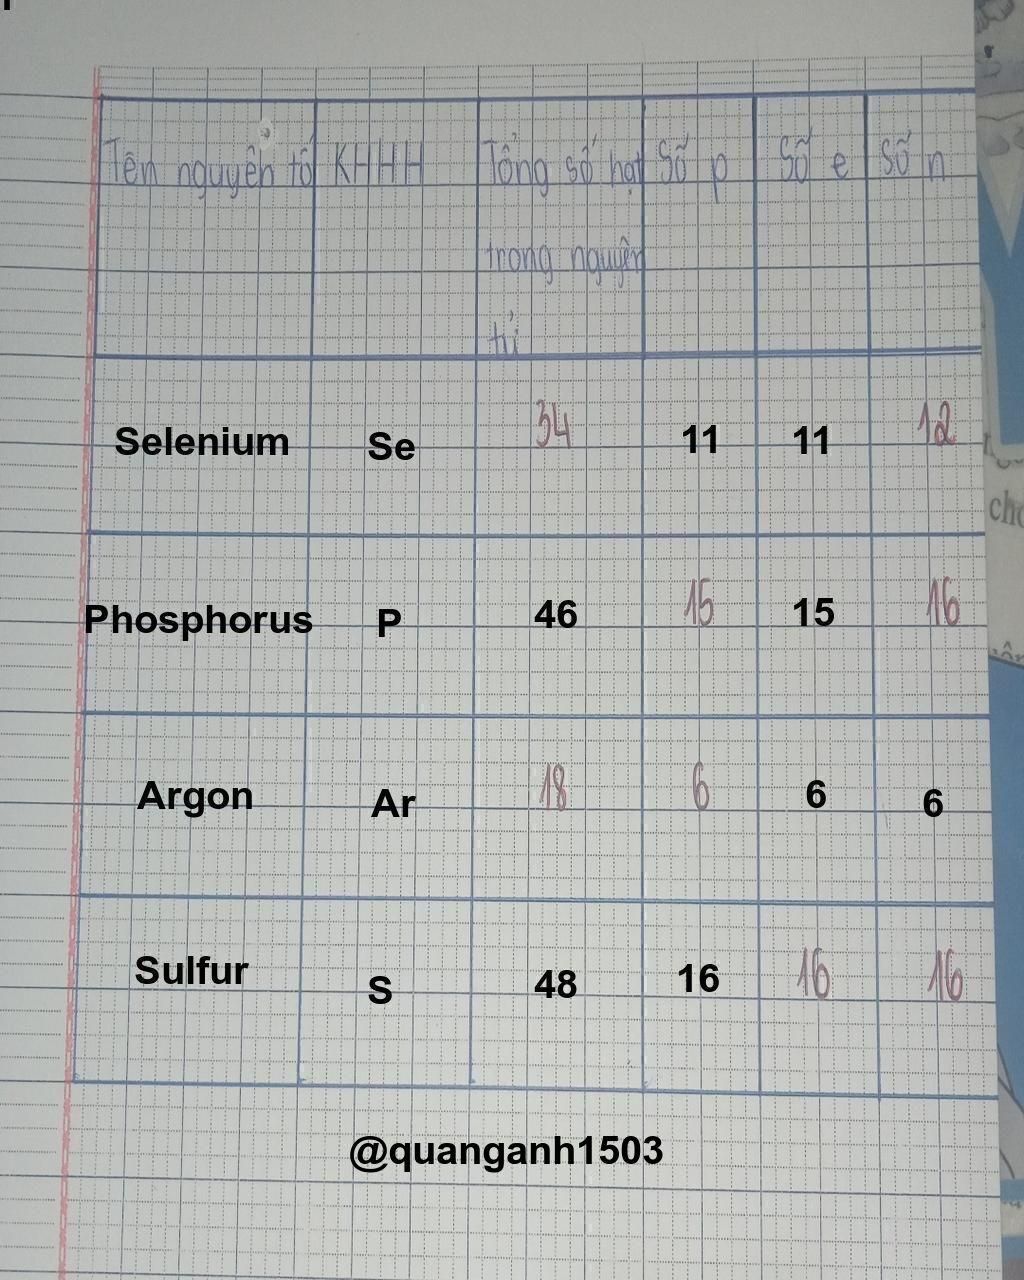 Tên nguyên tố KHHH Tổng số hạt Số p Số e Số n
trong nguyên
tử
Selenium Se 34 11 11 12
Phosphorus P 46 15 15 16
Argon Ar 18 6 6 6
Sulfur S 48 16 16 16
@quanganh1503